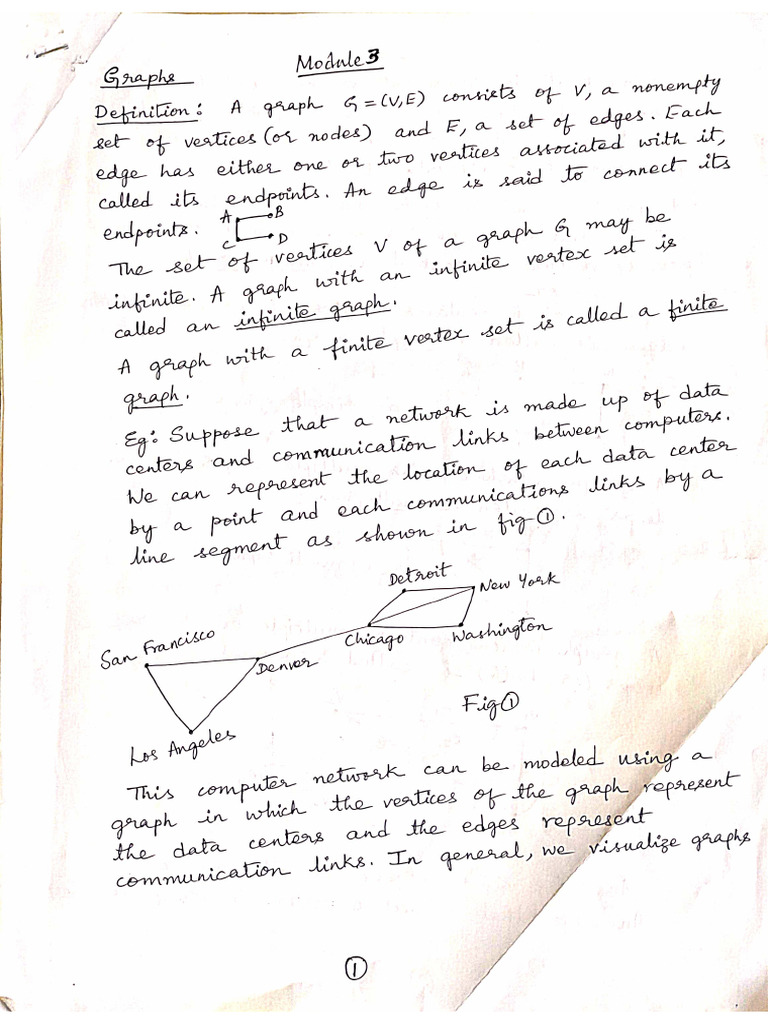 Module 3
Graphs
Definition: A graph G = (V,E) consists of V, a nonempty
set of vertices (or nodes) and E, a set of edges. Each
edge has either one or two vertices associated with it,
called its endpoints. An edge is said to connect its
endpoints. A B C D
The set of vertices V of a graph G may be
infinite. A graph with an infinite vertex set is
called an infinite graph.
A graph with a finite vertex set is called a finite
graph.
Eg: Suppose that a network is made up of data
centers and communication links between computers.
We can represent the location of each data center
by a point and each communications links by a
line segment as shown in fig ①.
Detroit
New York
San Francisco
Chicago
Washington
Denver
Los Angeles
Fig ①
This computer network can be modeled using a
graph in which the vertices of the graph represent
the data centers and the edges represent
communication links. In general, we visualize graphs
①